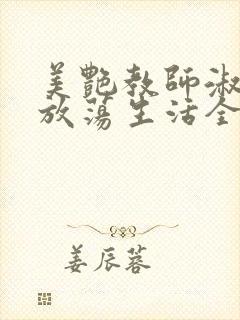 美艷教師淑
放蕩生活全
姜辰蓉